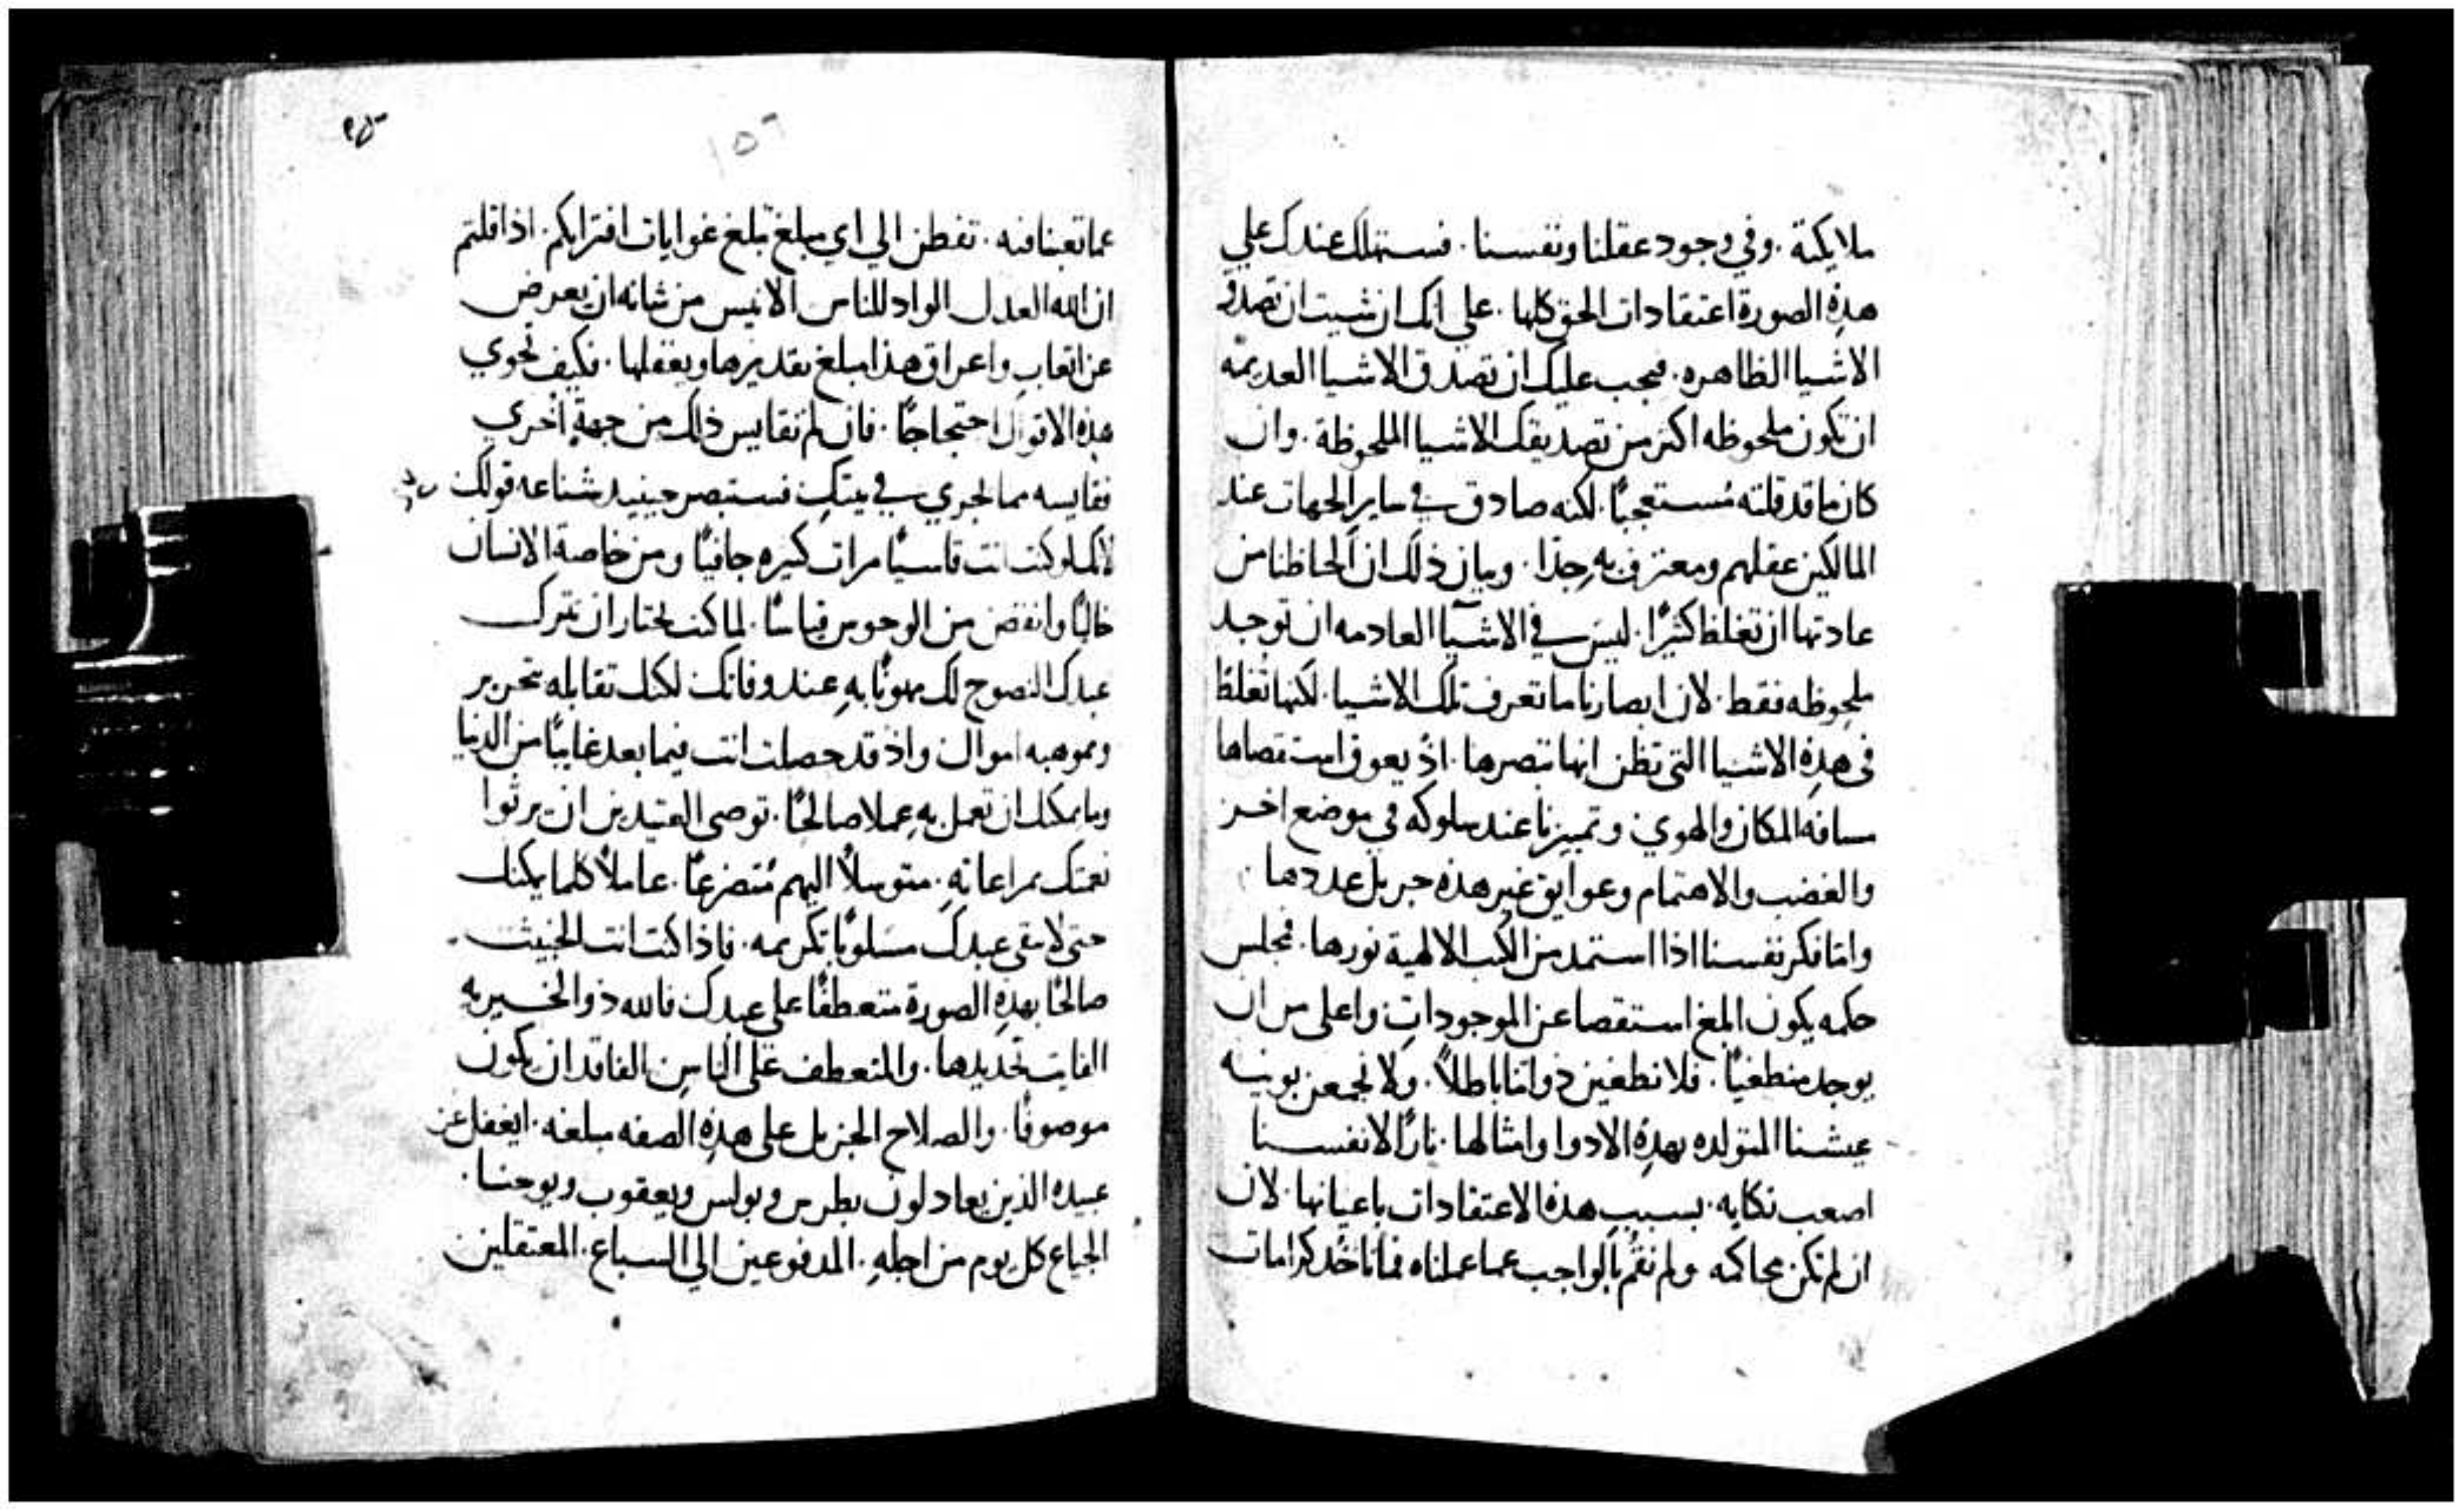 ملايكته . وفي وجود عقلنا ونفسنا . فستملك عندك علي
هذه الصورة اعتقادات الحق كلها . علي انك ان شيت ان تصدق
الاشيا الظاهره . فيجب عليك ان تصدق الاشيا العديمه
ان تكون ملحوظه اكثر من تصديقك الاشيا الملحوظة . وان
كان ما قد قلته مستعجبًا . لكنه صادق في ساير الجهات عند
المالكين عقلهم ومعترف به جدًا . وبيان ذلك ان الحاظنا من
عادتها ان تغلظ كثيرًا . ليس في الاشيا العادمه ان توجد
ملحوظه فقط . لان ابصارنا ما تعرف تلك الاشيا . لكنها تغلظ
في هذه الاشيا التي تظن انها تبصرها . اذ يعوق استقصاها
مسافه المكان والهوي وتمييزنا عند سلوكه في موضع اخر
والغضب والاهتمام وعوايق غير هذه جزيل عددها
وامّا فكر نفسنا اذا استمد من الكتب الالهية نورها . فمجلس
حكمه يكون ابلغ استقصا عن الموجودات واعلي من ان
يوجد منطغيًا . فلا نطغين ذواتنا باطلاً . ولا نجمعن بوينيه
عيشنا المتولده بهذه الادوا وامثالها . نارًا لانفسنا
اصعب نكايه . بسبب هذه الاعتقادات باعيانها . لان
ان لم تكن محاكمه ولم نقم بالواجب عما عملناه فما ناخذ كرامات
٢٥
١٥٦
عما تعبنا فيه . تفطن الي اي مبلغ تبلغ غوايات افترايكم . اذا قلتم
ان الله العدل الواد للناس الانيس من شانه ان يعرض
عن اتعاب واعراق هذا مبلغ تقديرها ويغفلها . فكيف تحوي
هذه الاقوال احتجاجًا . فان لم تقايس ذلك من جهة اخري
فقايسه مما يجري في بيتك فستبصر حينيد شناعه قولك
لانك لو كنت انت قاسيًا مرات كثيره جافيًا ومن خاصة الانسان
خاليًا وانقض من الوحوس قياسًا . لما كنت تختار ان تترك
عبدك النصوح لك مهونًا به عند وفاتك لكنك تقابله بتحرير
وبموهبه اموال واذ قد حصلت انت فيما بعد غايبًا من الدنيا
وما يمكنك ان تعمل به عملا صالحًا . توصي العتيدين ان يرثوا
نعمتك بمراعاته . متوسلاً اليهم مُتضرعًا . عاملاً كلما يمكنك
حتي لا يبقي عبدك مسلوبًا تكريمه . فاذا كنت انت الخبيث
صالحًا بهذه الصورة متعطفًا علي عبدك فالله ذو الخيريه
الفايت تحديدها . والمتعطف علي الناس الفاقد ان يكون
موصوفًا . والصلاح الجزيل علي هذه الصفه مبلغه . ايغفل عن
عبيده الذين يعادلون بطرس وبولس ويعقوب ويوحنا .
الجياع كل يوم من اجله . المدفوعين الي السباع . المعتقلين